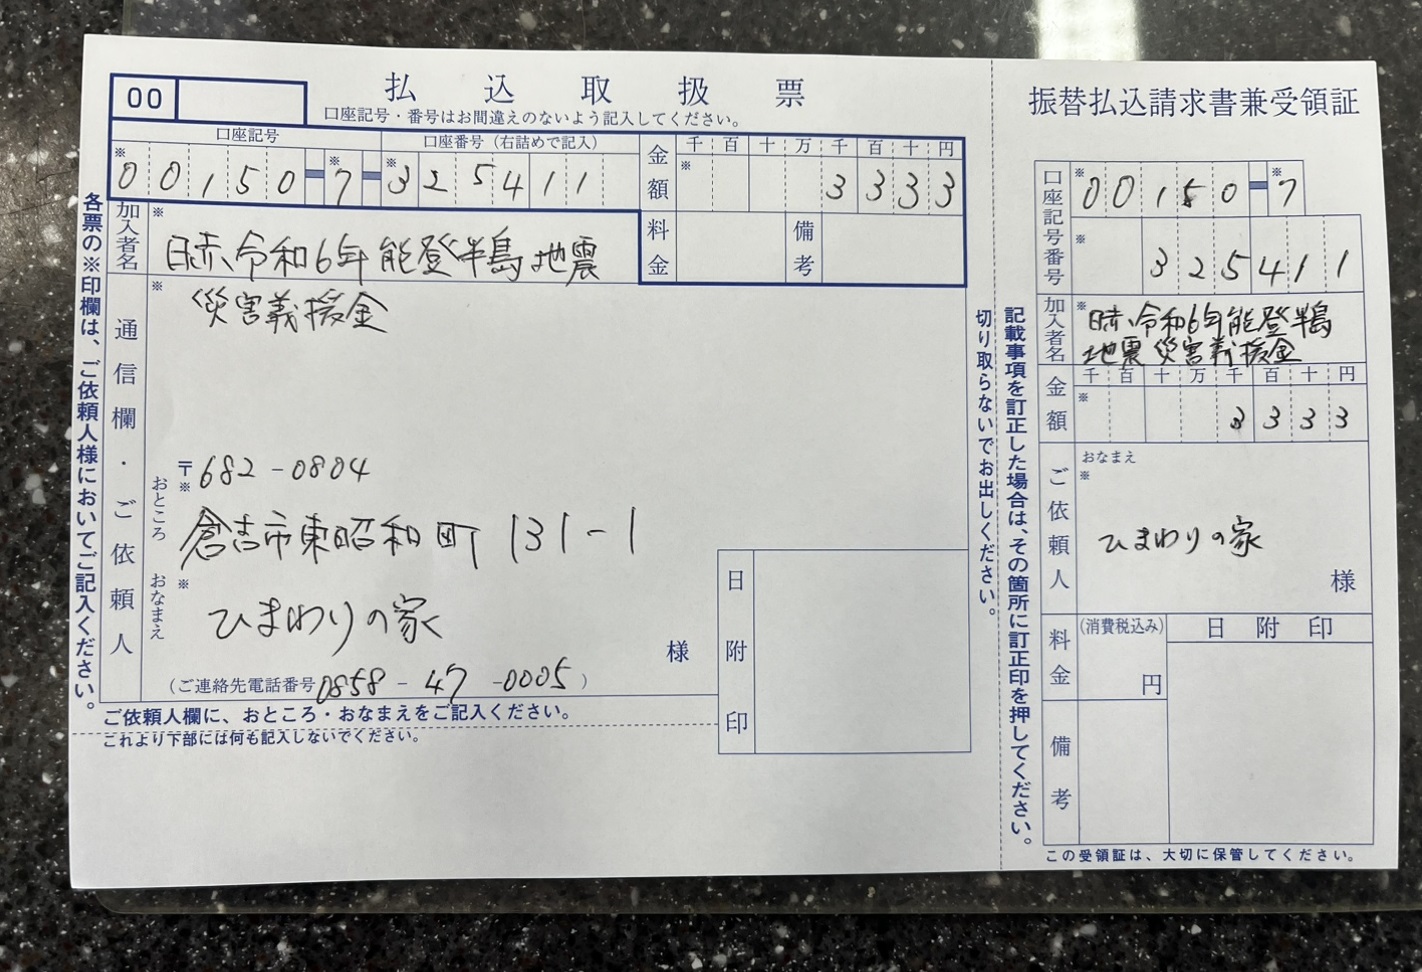 00
払込取扱票
口座記号・番号はお間違えのないよう記入してください。
口座記号
口座番号(右詰めで記入)
※ ※ ※
00150-7-325411
金額
千百十万千百十円
※
3333
料金
備考
加入者名
※
日赤、令和6年能登半島地震
災害義援金
通信欄・ご依頼人
※
〒682-0804
※
おところ
倉吉市東昭和町131-1
おなまえ
※
ひまわりの家
様
(ご連絡先電話番号0858-47-0005)
日附印
ご依頼人欄に、おところ・おなまえをご記入ください。
これより下部には何も記入しないでください。
各票の※印欄は、ご依頼人様においてご記入ください。
切り取らないでお出しください。
記載事項を訂正した場合は、その箇所に訂正印を押してください。
振替払込請求書兼受領証
口座記号番号
※ ※
00150-7
※
325411
加入者名
※
日赤、令和6年能登半島
地震災害義援金
金額
千百十万千百十円
※
3333
ご依頼人
おなまえ
※
ひまわりの家
様
料金
(消費税込み)
円
日附印
備考
この受領証は、大切に保管してください。